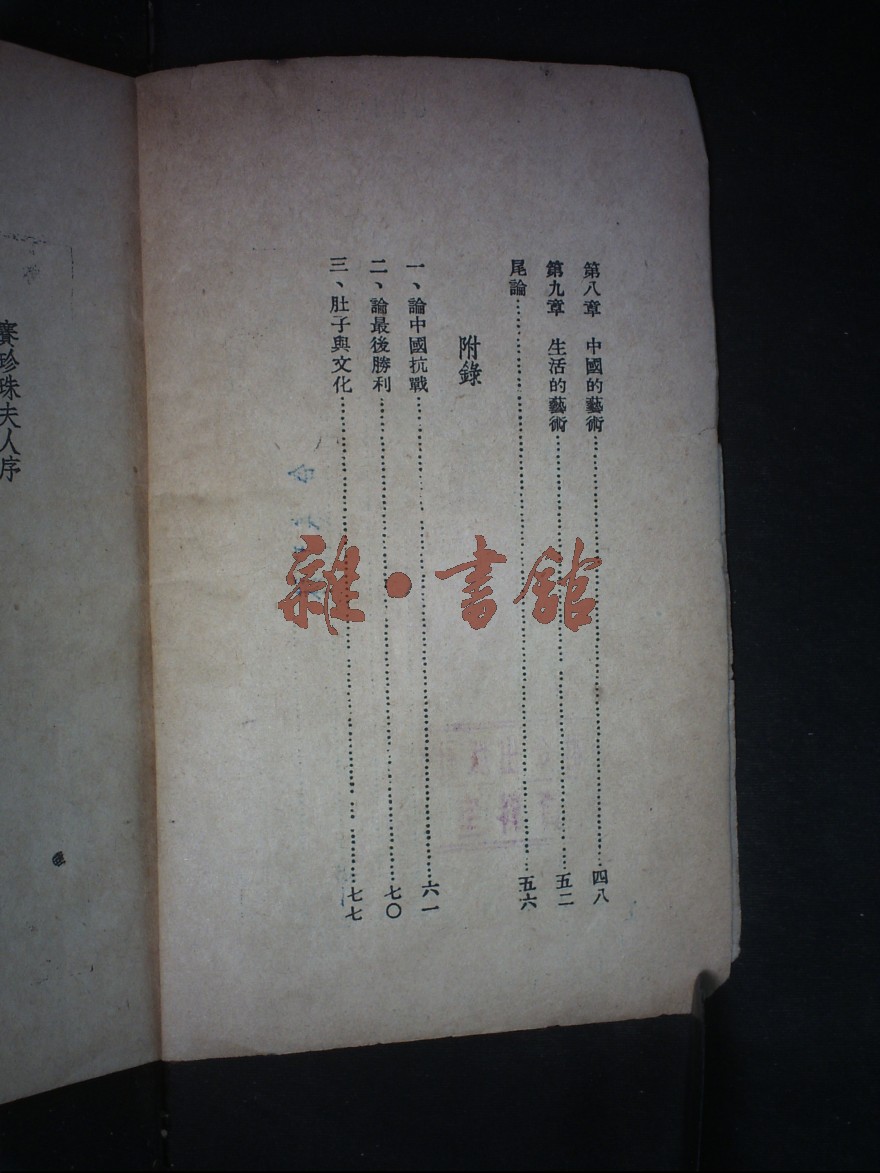 第八章　中國的藝術………四八
第九章　生活的藝術………五二
尾論………五六
附錄
一、論中國抗戰………六一
二、論最後勝利………七〇
三、肚子與文化………七七
賽珍珠夫人序
雜·書館